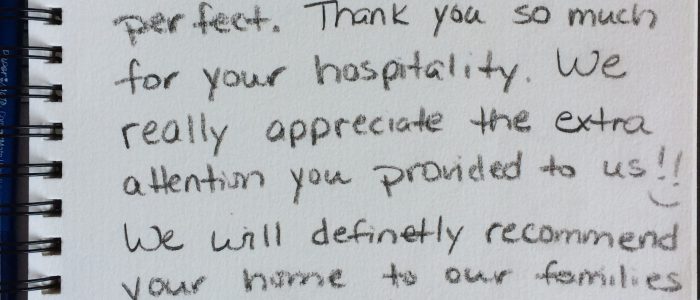 perfect. Thank you so much
for your hospitality. We
really appreciate the extra
attention you provided to us!!
We will definetly recommend
your home to our families